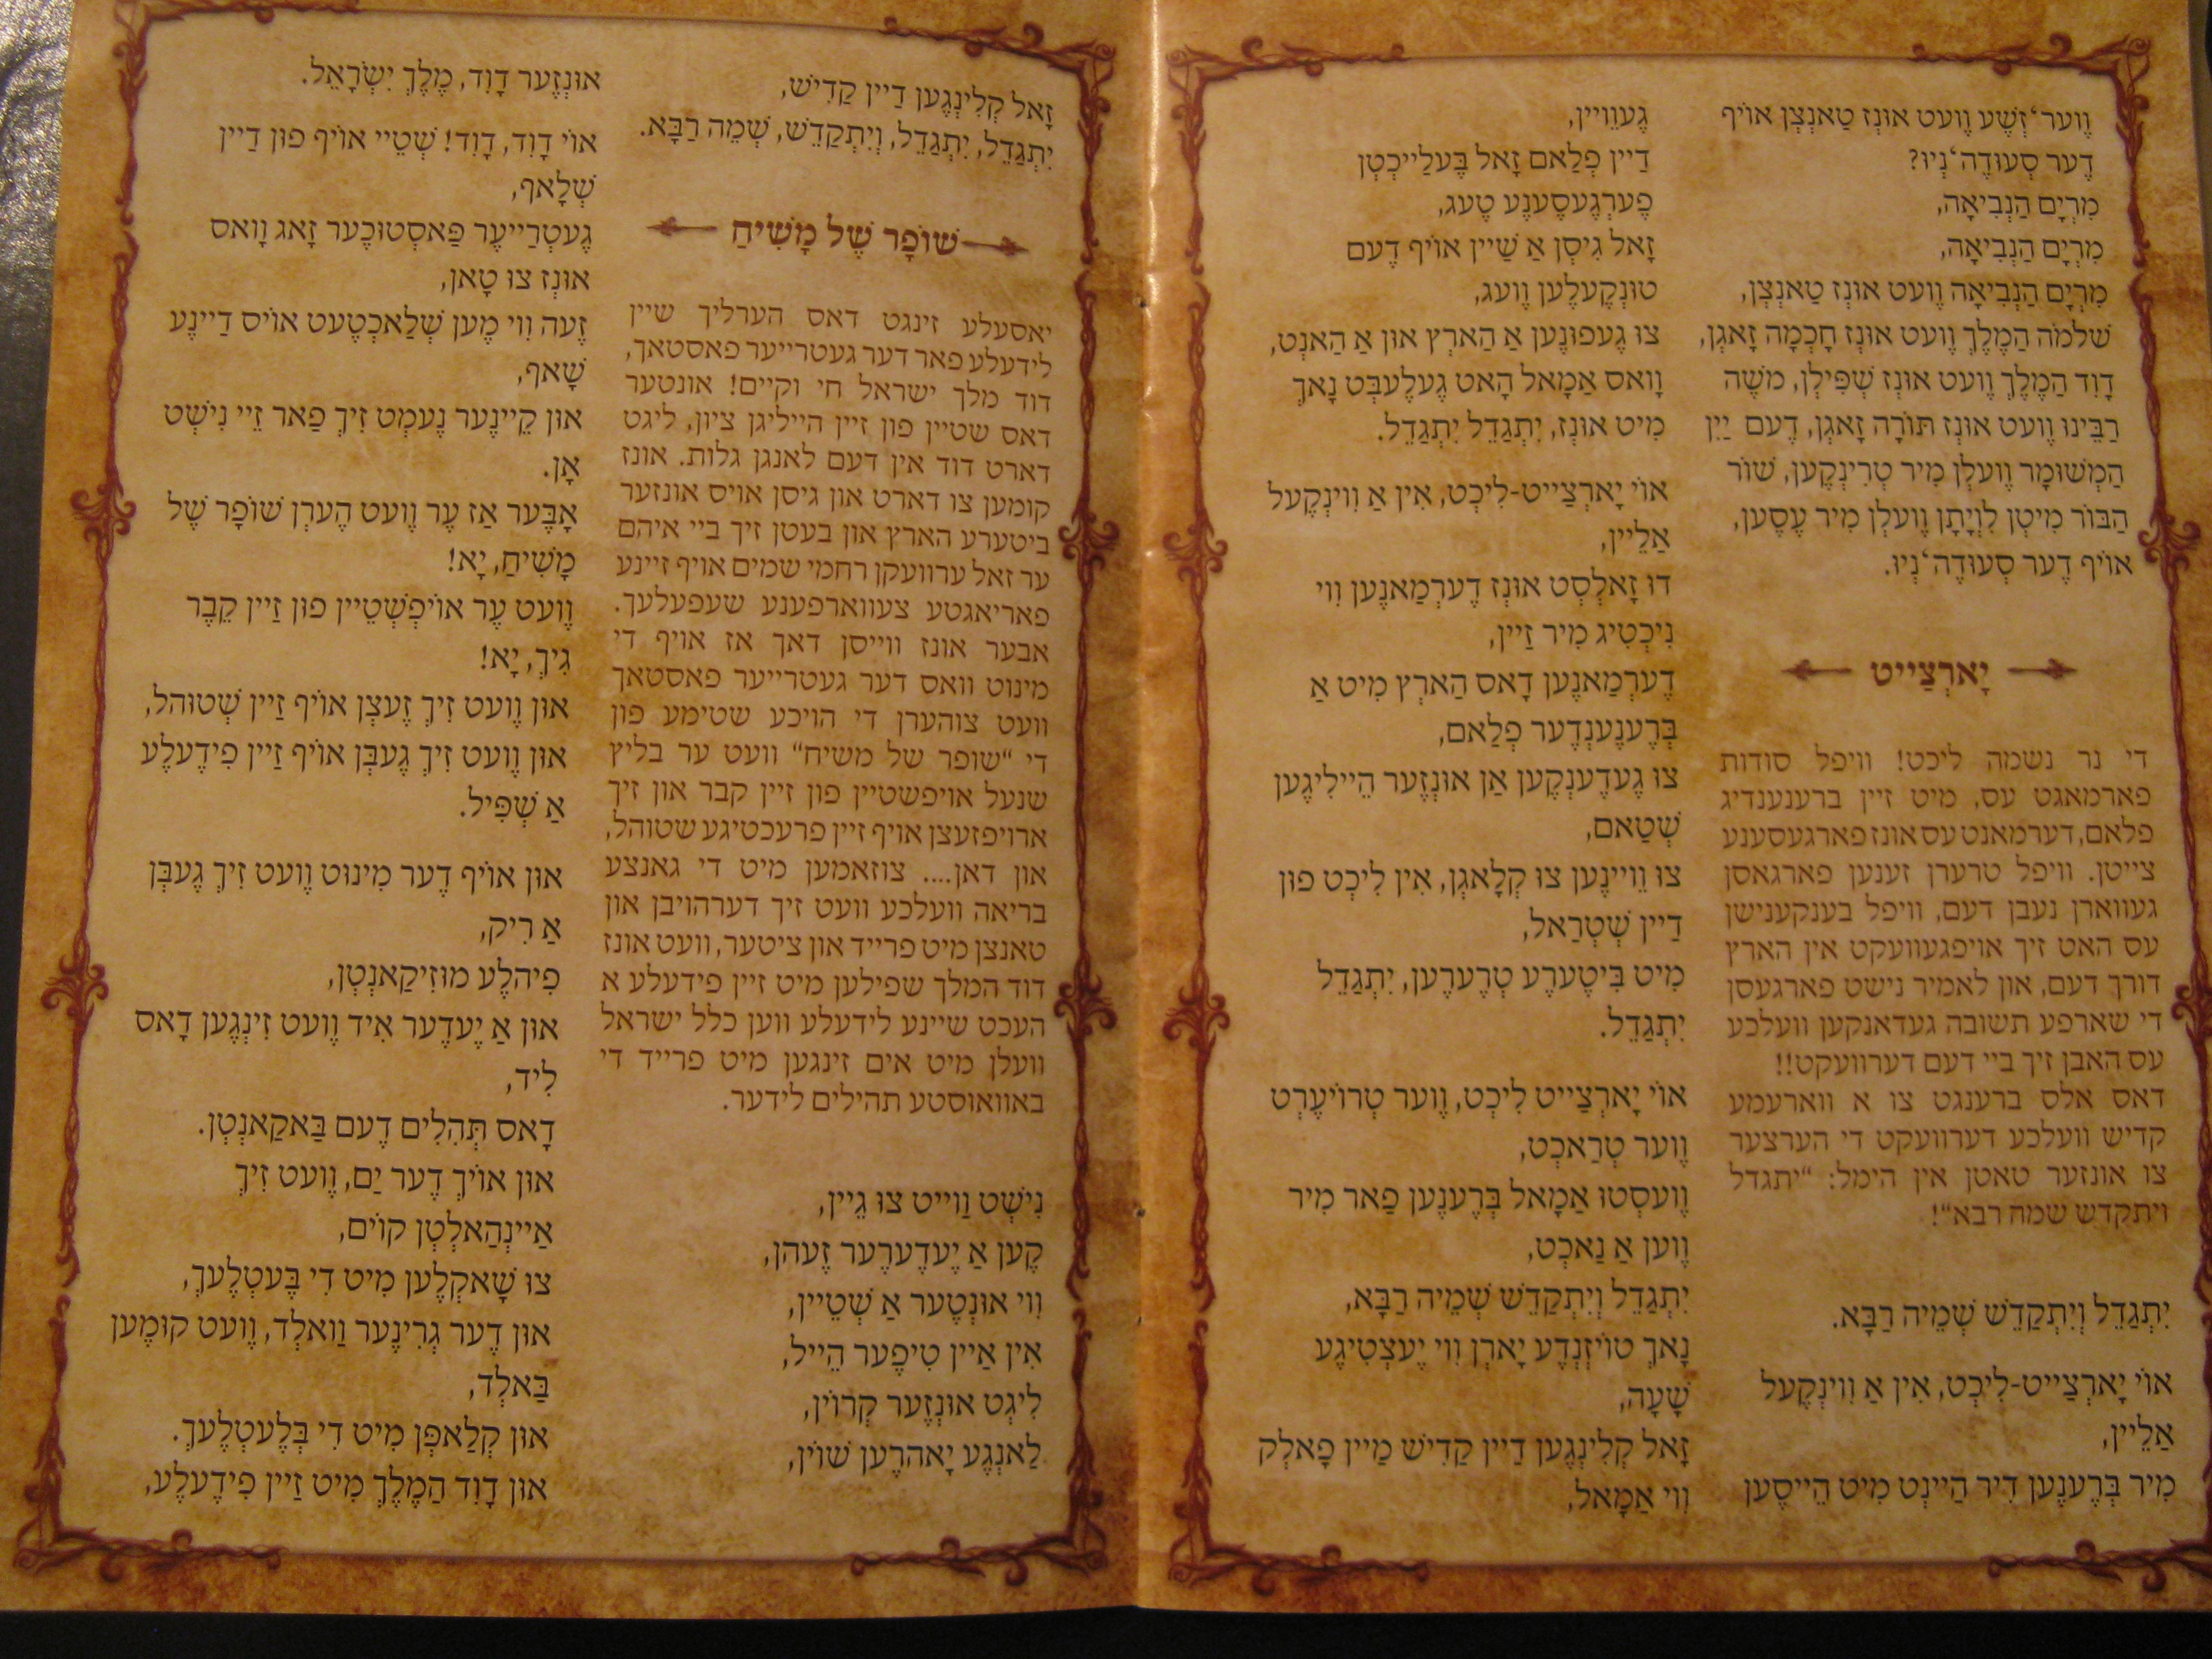 ווער'זשע וועט אונז טאנצן אויף
דער סעודה'ניו?
מרים הנביאה,
מרים הנביאה,
מרים הנביאה וועט אונז טאנצן,
שלמה המלך וועט אונז חכמה זאגן,
דוד המלך וועט אונז שפילן, משה
רבינו וועט אונז תורה זאגן, דעם יין
המשומר וועלן מיר טרינקען, שור
הבור מיטן לויתן וועלן מיר עסען,
אויף דער סעודה'ניו.
יארצייט
די נר נשמה ליכט! וויפל סודות
פארמאגט עס, מיט זיין ברענענדיג
פלאם, דערמאנט עס אונז פארגעסענע
צייטן. וויפל טרערן זענען פארגאסן
געווארן נעבן דעם, וויפל בענקענישן
עס האט זיך אויפגעוועקט אין הארץ
דורך דעם, און לאמיר נישט פארגעסן
די שארפע תשובה געדאנקען וועלכע
עס האבן זיך ביי דעם דערוועקט!!
דאס אלס ברענגט צו א ווארעמע
קדיש וועלכע דערוועקט די הערצער
צו אונזער טאטן אין הימל: "יתגדל
ויתקדש שמח רבא"!
יתגדל ויתקדש שמיה רבא.
אוי יארצייט-ליכט, אין א ווינקעל
אליין,
מיר ברענען דיר היינט מיט הייסען
געוויין,
דיין פלאם זאל בעלייכטן
פערגעסענע טעג,
זאל גיסן א שיין אויף דעם
טונקעלען וועג,
צו געפונען א הארץ און א האנט,
וואס אמאל האט געלעבט נאך
מיט אונז, יתגדל יתגדל.
אוי יארצייט-ליכט, אין א ווינקעל
אליין,
דו זאלסט אונז דערמאנען ווי
ניכטיג מיר זיין,
דערמאנען דאס הארץ מיט א
ברענענדער פלאם,
צו געדענקען אן אונזער הייליגען
שטאם,
צו וויינען צו קלאגן, אין ליכט פון
דיין שטראל,
מיט ביטערע טרערען, יתגדל
יתגדל.
אוי יארצייט ליכט, ווער טרויערט
ווער טראכט,
וועסטו אמאל ברענען פאר מיר
ווען א נאכט,
יתגדל ויתקדש שמיה רבא,
נאך טויזנדע יארן ווי יעצטיגע
שעה,
זאל קלינגען דיין קדיש מיין פאלק
ווי אמאל,
זאל קלינגען דיין קדיש,
יתגדל, יתגדל, ויתקדש, שמה רבא.
שופר של משיח
יאסעלע זינגט דאס הערליך שיין
לידעלע פאר דער געטרייער פאסטאך,
דוד מלך ישראל חי וקיים! אונטער
דאס שטיין פון זיין הייליגן ציון, ליגט
דארט דוד אין דעם לאנגן גלות. אונז
קומען צו דארט און גיסן אויס אונזער
ביטערע הארץ און בעטן זיך ביי איהם
ער זאל ערוועקן רחמי שמים אויף זיינע
פאריאגטע צעווארפענע שעפעלעך.
אבער אונז ווייסן דאך אז אויף די
מינוט וואס דער געטרייער פאסטאך
וועט צוהערן די הויכע שטימע פון
די "שופר של משיח" וועט ער בליץ
שנעל אויפשטיין פון זיין קבר און זיך
ארויפזעצן אויף זיין פרעכטיגע שטוהל,
און דאן.... צוזאמען מיט די גאנצע
בריאה וועלכע וועט זיך דערהויבן און
טאנצן מיט פרייד און ציטער, וועט אונז
דוד המלך שפילען מיט זיין פידעלע א
העכט שיינע לידעלע ווען כלל ישראל
וועלן מיט אים זינגען מיט פרייד די
באוואוסטע תהילים לידער.
נישט ווייט צו גיין,
קען א יעדערער זעהן,
ווי אונטער א שטיין,
אין איין טיפער הייל,
ליגט אונזער קרוין,
לאנגע יאהרען שוין,
אונזער דוד, מלך ישראל.
אוי דוד, דוד! שטיי אויף פון דיין
שלאף,
געטרייער פאסטוכער זאג וואס
אונז צו טאן,
זעה ווי מען שלאכטעט אויס דיינע
שאף,
און קיינער נעמט זיך פאר זיי נישט
אן.
אבער אז ער וועט הערן שופר של
משיח, יא!
וועט ער אויפשטיין פון זיין קבר
גיך, יא!
און וועט זיך זעצן אויף זיין שטוהל,
און וועט זיך געבן אויף זיין פידעלע
א שפיל.
און אויף דער מינוט וועט זיך געבן
א ריק,
פיהלע מוזיקאנטן,
און א יעדער איד וועט זינגען דאס
ליד,
דאס תהלים דעם באקאנטן.
און אויך דער ים, וועט זיך
איינהאלטן קוים,
צו שאקלען מיט די בעטלעך,
און דער גרינער וואלד, וועט קומען
באלד,
און קלאפן מיט די בלעטלעך.
און דוד המלך מיט זיין פידעלע,